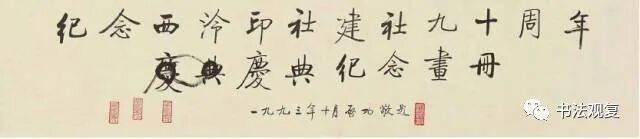 紀念西泠印社建社九十周年
慶典慶典紀念畫冊
一九九三年十月启功敬題
书法观复